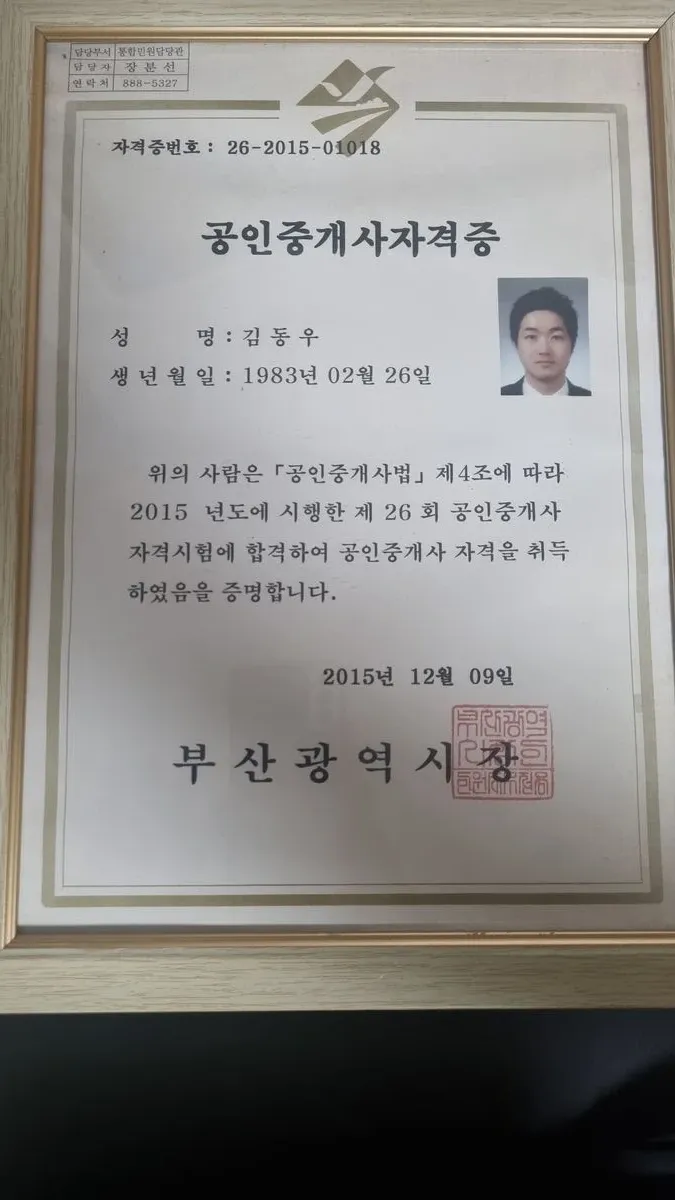 담당부서 통합민원담당관
담당자 장분선
연락처 888-5327
자격증번호 : 26-2015-01018
공인중개사자격증
성 명 : 김동우
생년월일 : 1983년 02월 26일
위의 사람은 「공인중개사법」 제4조에 따라
2015 년도에 시행한 제 26 회 공인중개사
자격시험에 합격하여 공인중개사 자격을 취득
하였음을 증명합니다.
2015년 12월 09일
부산광역시장